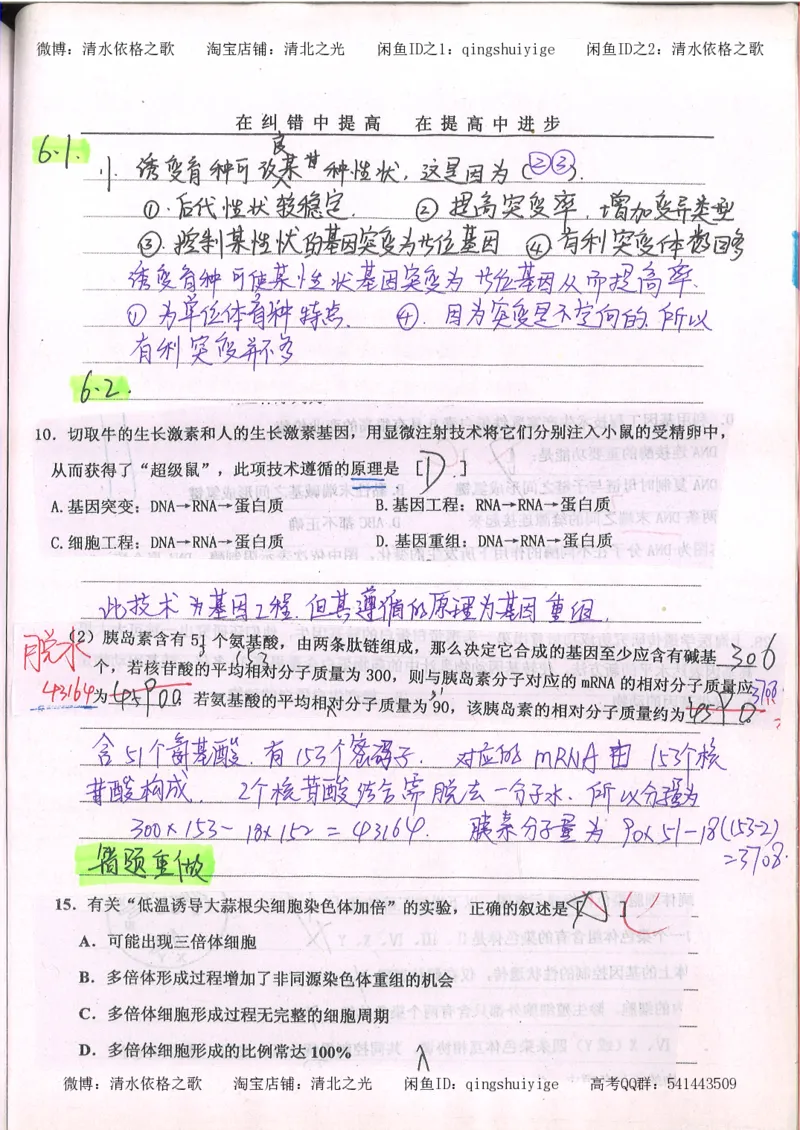 微博：清水依格之歌 淘宝店铺：清北之光 闲鱼ID之1：qingshuiyige 闲鱼ID之2：清水依格之歌
在纠错中提高 在提高中进步
6.1.
1. 诱变育种可改良某种性状，这是因为（②③）.
①.后代性状较稳定. ② 提高突变率，增加变异类型
③.控制某性状的基因突变为等位基因 ④.有利突变体数目多
诱变育种可使某性状基因突变为等位基因从而提高率.
① 为单倍体育种特点. ④. 因为突变是不定向的.所以
有利突变并不多
6.2.
10．切取牛的生长激素和人的生长激素基因，用显微注射技术将它们分别注入小鼠的受精卵中，
从而获得了“超级鼠”，此项技术遵循的原理是 [D.]
A.基因突变：DNA→RNA→蛋白质 B.基因工程：RNA→RNA→蛋白质
C.细胞工程：DNA→RNA→蛋白质 D.基因重组：DNA→RNA→蛋白质
此技术为基因工程.但其遵循的原理为基因重组.
（2）胰岛素含有 51 个氨基酸，由两条肽链组成，那么决定它合成的基因至少应含有碱基 306
脱水 153
个，若核苷酸的平均相对分子质量为 300，则与胰岛素分子对应的 mRNA 的相对分子质量应
43164 为 45900 。若氨基酸的平均相对分子质量为 90，该胰岛素的相对分子质量约为
3708.
含51个氨基酸.有153个密码子. 对应的mRNA由153个核
苷酸构成. 2个核苷酸结合需脱去一分子水. 所以分子量为
300×153-18×152=43164. 胰素分子量为 90×51-18(153-2)
=3708.
错题重做
15．有关“低温诱导大蒜根尖细胞染色体加倍”的实验，正确的叙述是[ ]
A．可能出现三倍体细胞
B．多倍体形成过程增加了非同源染色体重组的机会
C．多倍体细胞形成过程无完整的细胞周期
D．多倍体细胞形成的比例常达 100%
微博：清水依格之歌 淘宝店铺：清北之光 闲鱼ID：qingshuiyige 高考QQ群：541443509